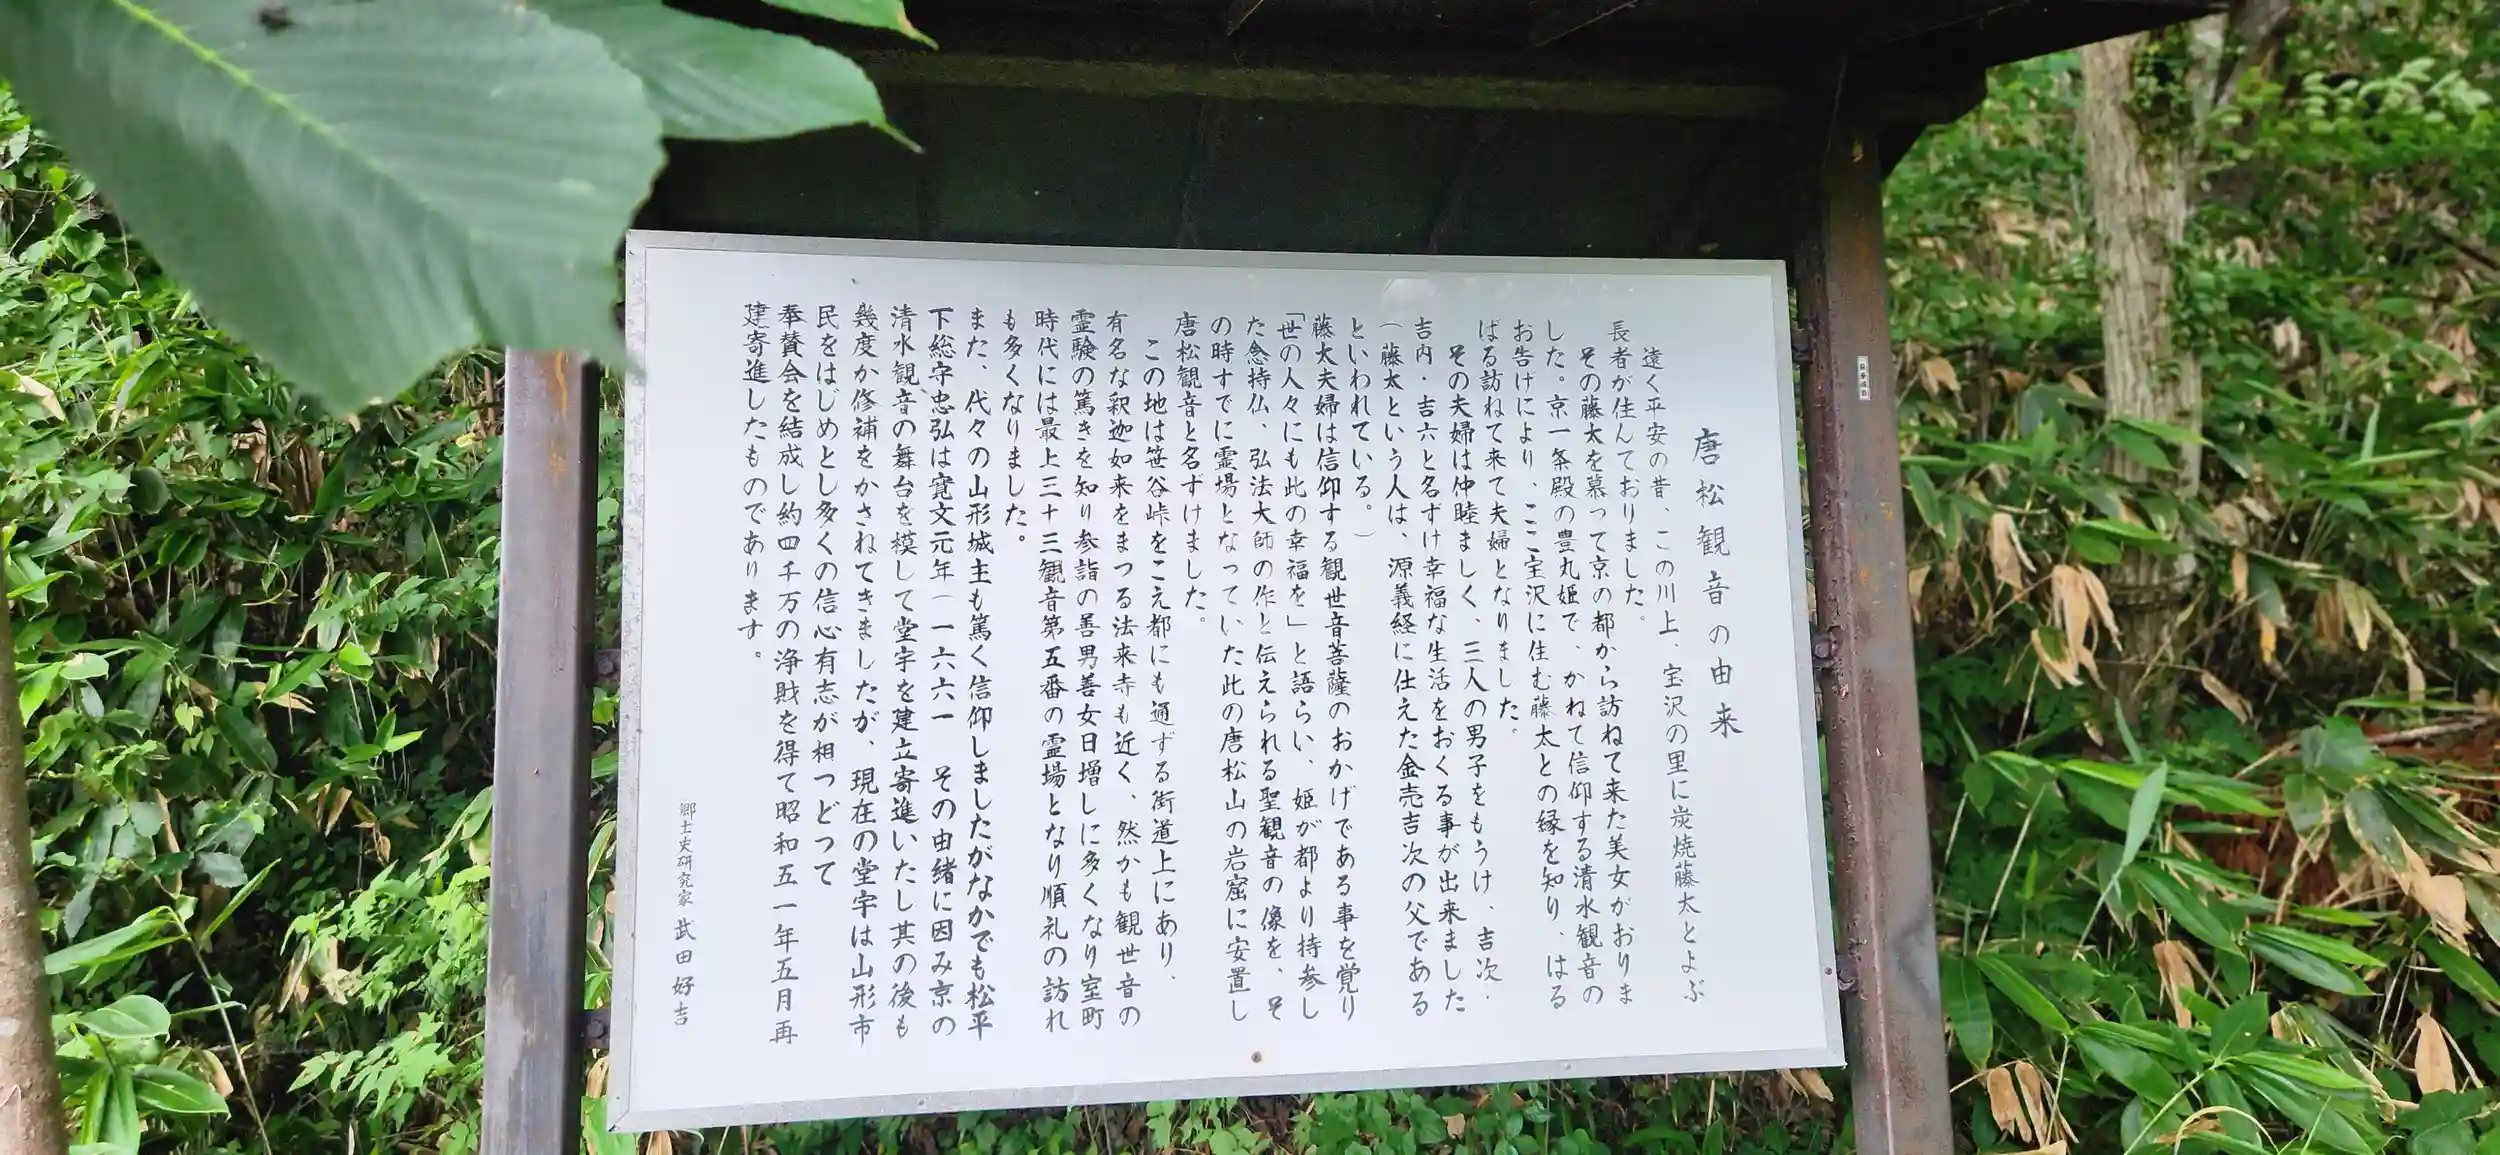 唐松観音の由来
遠く平安の昔、この川上、宝沢の里に炭焼藤太とよぶ
長者が住んでおりました。
その藤太を慕って京の都から訪ねて来た美女がおりま
した。京一条殿の豊丸姫で、かねて信仰する清水観音の
お告げにより、ここ宝沢に住む藤太との縁を知り、はる
ばる訪ねて来て夫婦となりました。
その夫婦は仲睦ましく、三人の男子をもうけ、吉次・
吉内・吉六と名ずけ幸福な生活をおくる事が出来ました
(藤太という人は、源義経に仕えた金売吉次の父である
といわれている。)
藤太夫婦は信仰する観世音菩薩のおかげである事を覚り
「世の人々にも此の幸福を」と語らい、姫が都より持参し
た念持仏、弘法大師の作と伝えられる聖観音の像を、そ
の時すでに霊場となっていた此の唐松山の岩窟に安置し
唐松観音と名ずけました。
この地は笹谷峠をこえ都にも通ずる街道上にあり、
有名な釈迦如来をまつる法来寺も近く、然かも観世音の
霊験の篤きを知り参詣の善男善女日増しに多くなり室町
時代には最上三十三観音第五番の霊場となり順礼の訪れ
も多くなりました。
また、代々の山形城主も篤く信仰しましたがなかでも松平
下総守忠弘は寛文元年(一六六一 その由緒に因み京の
清水観音の舞台を模して堂宇を建立寄進いたし其の後も
幾度か修補をかさねてきましたが、現在の堂宇は山形市
民をはじめとし多くの信心有志が相つどって
奉賛会を結成し約四千万の浄財を得て昭和五一年五月再
建寄進したものであります。
郷土史研究家 武田好吉